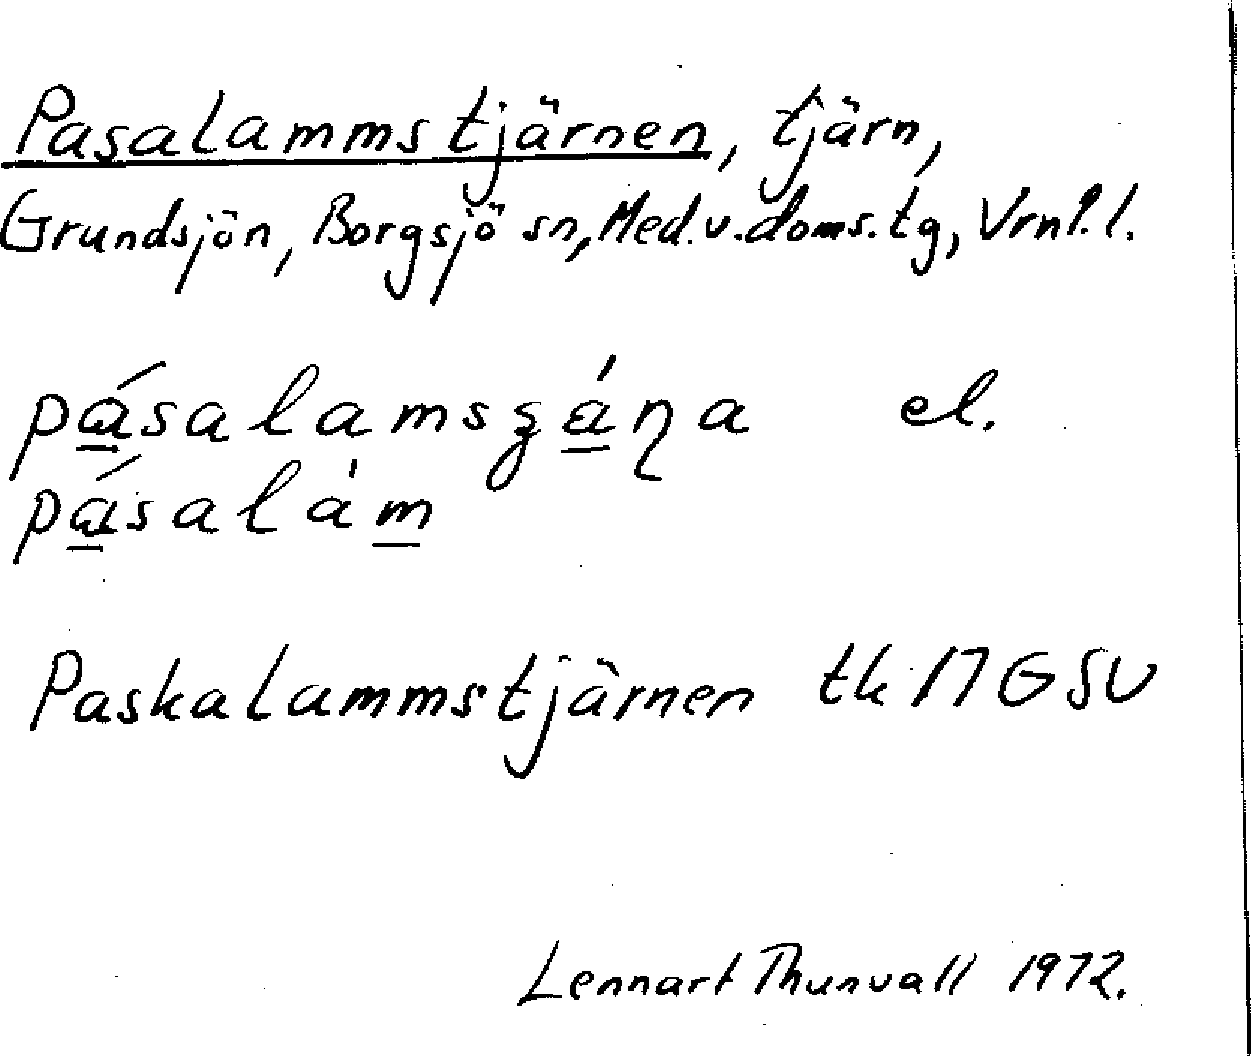 Pasalammstjärnen, tjärn,
Grundsjön, Borgsjö sn, Med.v.doms.tg, Vrnl.l.
pásalamsʒáɳa el.
pásalám
Paskalammstjärnen tk 17G SV
Lennart Thunvall 1972.